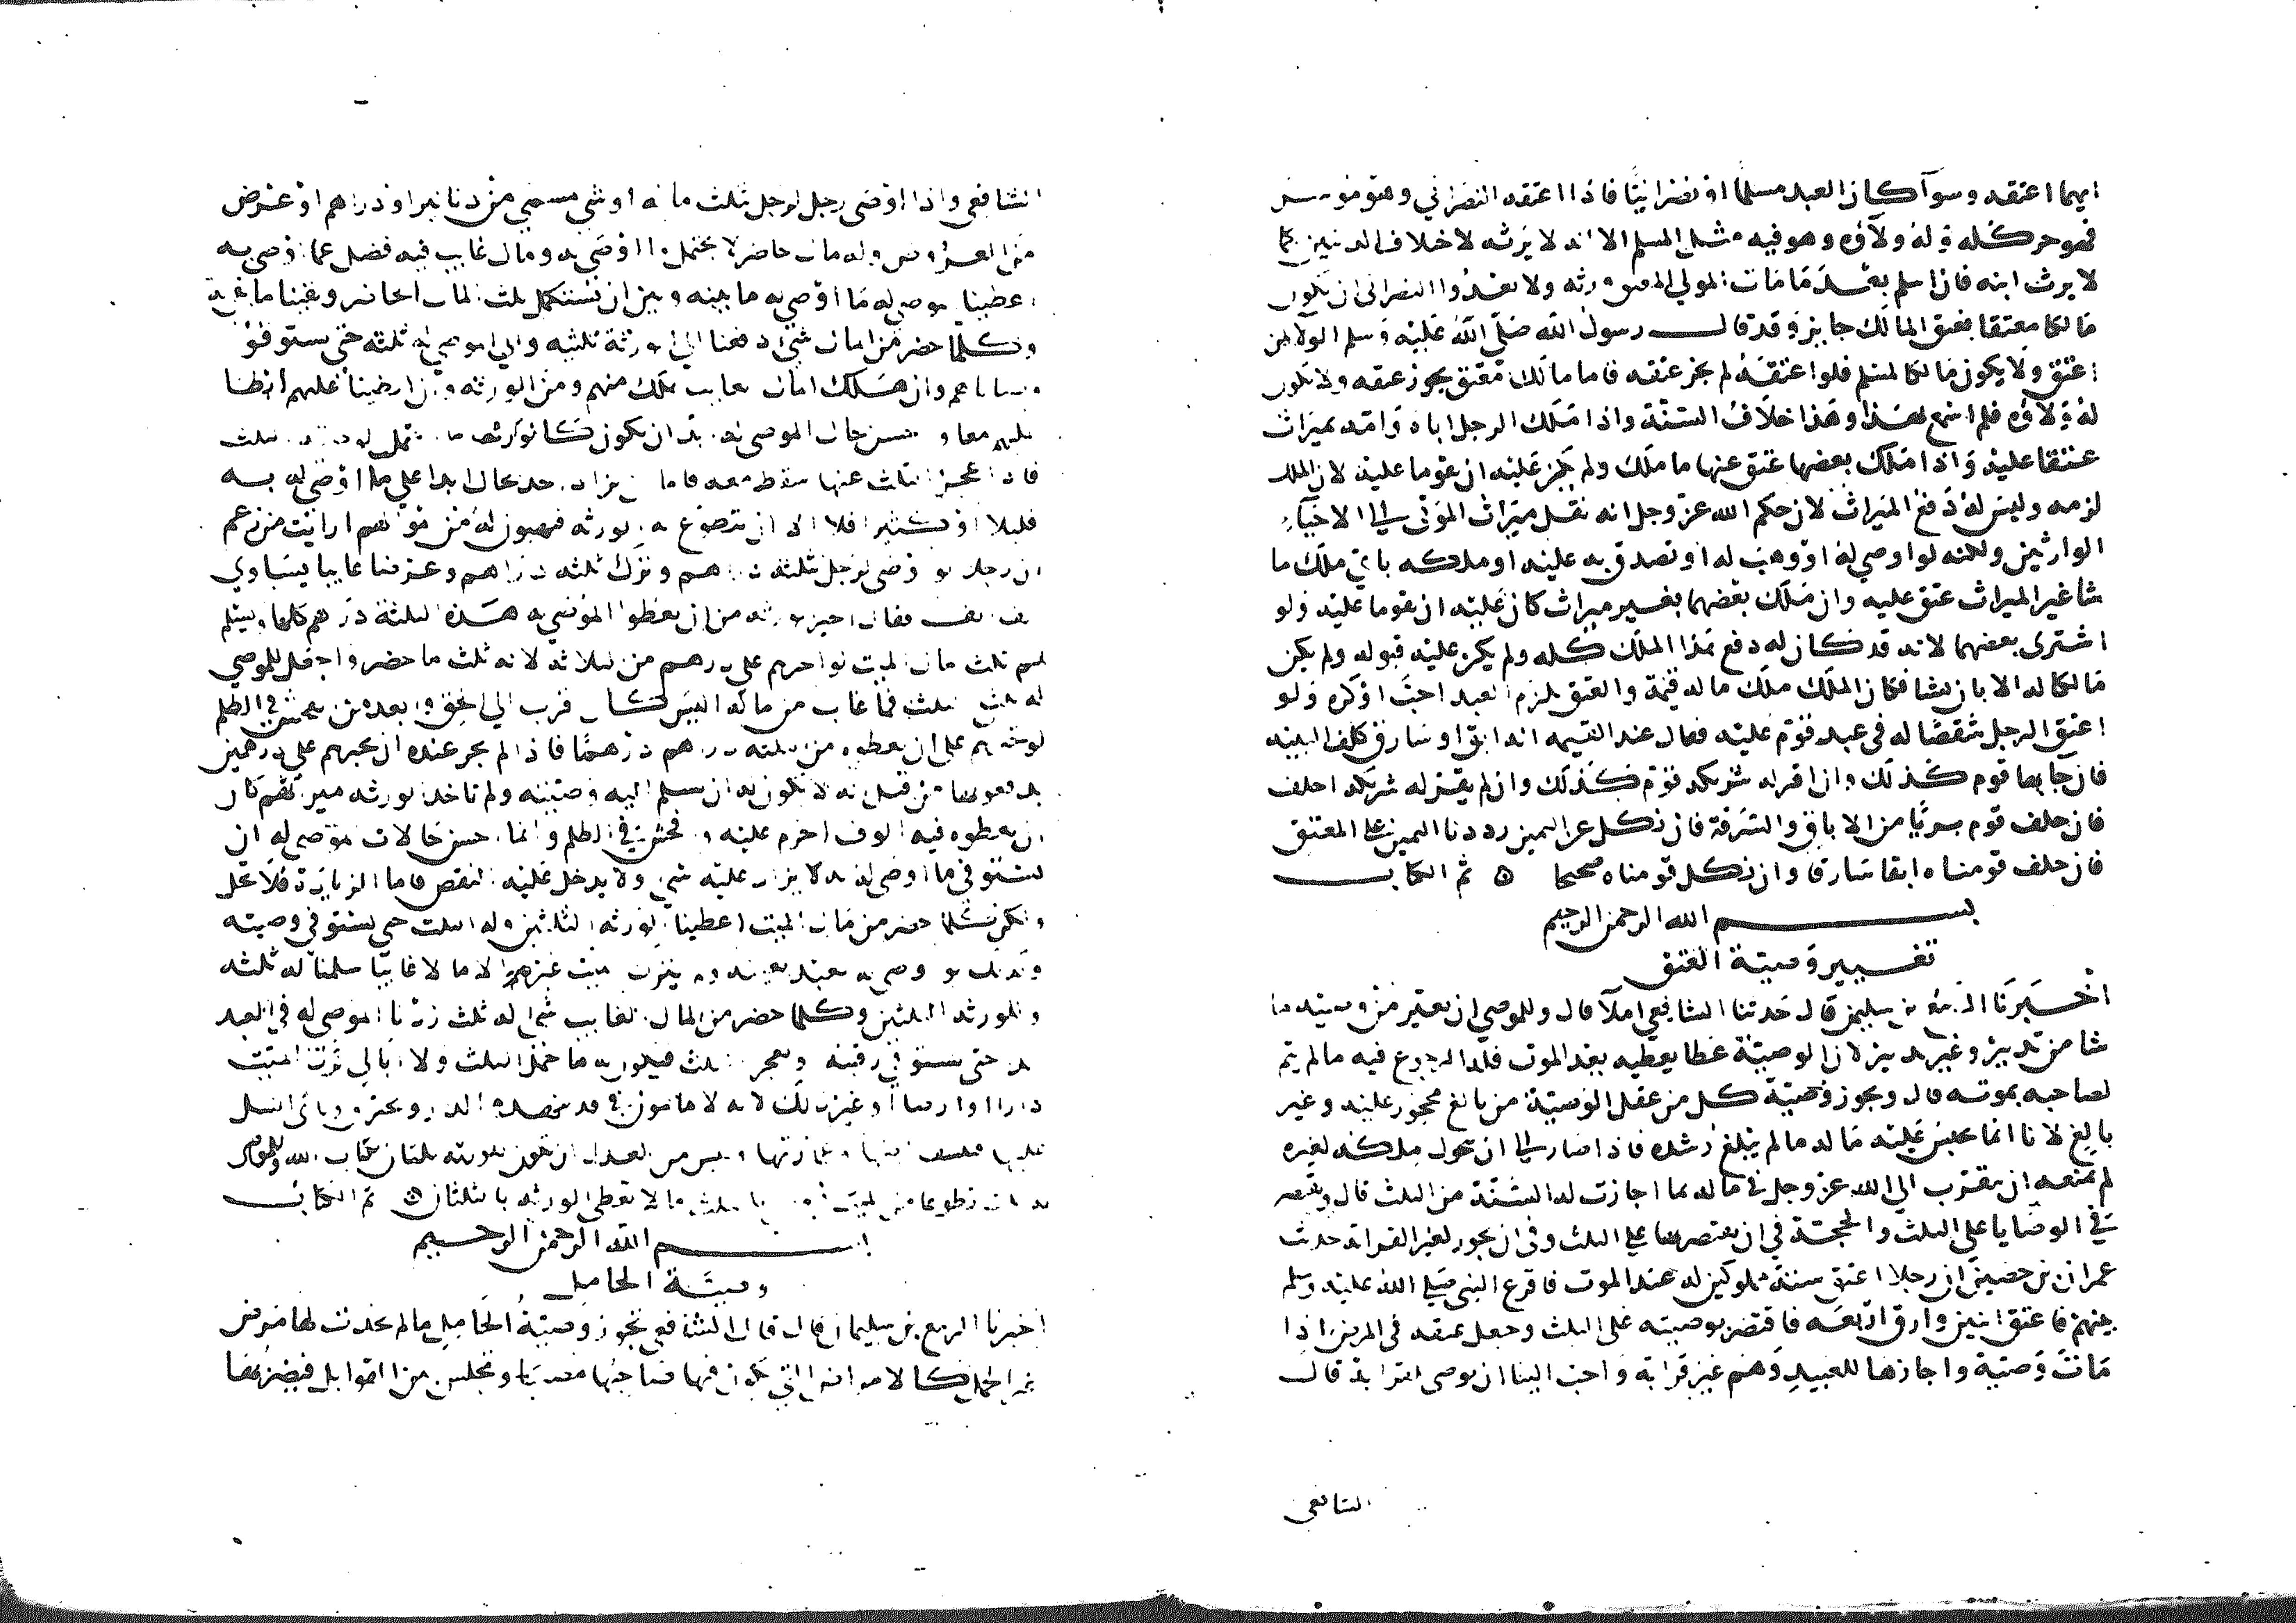 ايهما اعتقه وسوآ كان العبد مسلما او نصرانيا فاذا اعتقه النصراني وهو موسر
فهو حر كله وله ولاؤه وهو فيه مثل المسلم الا انه لا يرثه لاختلاف الدينين كما
لا يرث ابنه فان اسلم بعد ما مات المولي المعتق ورثه ولا يعدوا النصراني ان يكون
مالكا معتقا بعتق المالك جايز وقد قال رسول الله صلى الله عليه وسلم الولا لمن
اعتق ولا يكون مالكا لمسلم فلو اعتقه لم يجز عتقه فاما مالك معتق يجوز عتقه ولا يكون
له ولاؤه فلم اسمع بهذا وهذا خلاف السنة واذا ملك الرجل اباه وامه بميراث
عتقا عليه واذا ملك بعضها عتق عنها ما ملك ولم يكن عليه ان يقوما عليه لان الملك
لزمه وليس له دفع الميراث لان حكم الله عز وجل انه نقل ميراث الموتى الي الاحيآء
الوارثين ولكنه لو اوصي له او وهب له او تصدق به عليه او ملكه باي ملك ما
شا غير الميراث عتق عليه وان ملك بعضهما بغير ميراث كان عليه ان يقوما عليه ولو
اشترى بعضهما لانه قد كان له دفع هذا الملك كله ولم يكن عليه قبوله ولم يكن
مالكا له الا بان يشا فكان الملك ملك ماله قيمة والعتق يلزم العبد احب او كره ولو
اعتق الرجل شقصا له في عبد قوم عليه فقال عند القيمه انه ابق او سارق كلف البينه
فان جا بها قوم كذلك وان اقر له شريكه قوم كذلك وان لم يقر له شريكه احلف
فان حلف قوم بريا من الاباق والسرقة فان نكل عن اليمين رددنا اليمين على المعتق
فان حلف قومناه ابقا سارقا وان نكل قومناه صحيحا ۞ تم الكتاب
بسم الله الرحمن الرحيم
تغيير وصية العتق
اخبرنا الربيع بن سليمن قال حدثنا الشافعي املآ قال وللموصي ان يغير من وصيته ما
شا من تدبير وغير تدبير لان الوصية عطا يعطيه بعد الموت فله الرجوع فيه ما لم يتم
لصاحبه بموته قال وتجوز وصية كل من عقل الوصية من بالغ محجور عليه وغير
بالغ لانا انما نحبس عليه ماله ما لم يبلغ رشده فاذا صار الي ان تحول ملكه لغيره
لم نمنعه ان يتقرب الي الله عز وجل في ماله بما اجازت له السنة من الثلث قال ونقتصر
في الوصايا على الثلث والحجة في ان نقتصر بها على الثلث وفي ان تجوز لغير القرابة حديث
عمران بن حصين ان رجلا اعتق ستة مملوكين له عند الموت فاقرع النبي صلى الله عليه وسلم
بينهم فاعتق اثنين وارق اربعة فاقتصر بوصيته على الثلث وجعل عتقه في المرض اذا
مات وصية واجازها للعبيد وهم غير قرابة واحب الينا ان يوصي لقرابة قال
الشافعي
الشافعي واذا اوصى رجل لرجل بثلث ماله او شي مسمي من دنانير او دراهم او عرض
من العروض وله مال حاضر لا يحتمل ما اوصى به ومال غايب فيه فضل عما اوصى به
اعطينا الموصى له ما اوصي به ما بينه وبين ان يستكمل ثلث المال الحاضر وبقينا ما بقي له
وكلما حضر من المال شي دفعنا الى الورثة ثلثيه والي الموصي له ثلثه حتى يستوفوا
وصاياهم وان هلك المال الغايب هلك منهم ومن الورثه وان ابطينا عليهم ابطينا
عليهم معا واحسن حال الموصى له ابدا ان يكون كالوارث ما احتمل له الثلث
فاذا عجز الثلث عنها سقط معه فاما ان يزاد احد بحال ابدا على ما اوصى له به
قليلا او كثيرا فلا الا ان يتطوع له الورثه فيهبون له من اموالهم ارايت من زعم
ان رجلا لو اوصى لرجل بثلثة دراهم وترك ثلثه دراهم وعرضا غايبا يساوي
الف فقال اخير الورثه من ان يعطوا الموصى له هذه الثلثة دراهم كلها ويسلم
لهم ثلث مال الميت او احرم على درهم من الثلاثه لانه ثلث ما حضر واجعل للموصي
له ثلث الثلث فيما غاب من ماله اليس كان اقرب الى الحق وابعد من الفحش في الظلم
لو جبرهم على ان يعطوه من الثلثه دراهم درهما فاذا لم يجز عنده ان يجبرهم علي درهمين
يدفعونهما من قبل انه لا يكون له ان يسلم اليه وصيته ولم تاخذ الورثه ميراثهم كان
ان يعطوه فيه الوف احرم عليه وافحش في الظلم وانما احسن حالات الموصى له ان
يستوفي ما اوصى له به لا يزاد عليه شي ولا يدخل عليه النقص فاما الزيادة فلا تحل
ولكن كلما حضر من مال الميت اعطينا الورثه الثلثين وله الثلث حتى يستوفي وصيته
وكذلك لو اوصى له بعبد بعينه ولم يترك الميت غيره الا مالا غايبا سلمنا له ثلثه
وللورثه الثلثين وكلما حضر من المال الغايب شي له ثلث زدنا الموصى له في العبد
ابدا حتى يستوفي رقبته او يعجز الثلث فيكون له ما حمل الثلث ولا ابالي ترك الميت
دارا او ارضا او غير ذلك لانه لا مامون في قد تنهدم الدار وتحترق وياتي السيل
عليها فينسف ارضها وعمارتها وليس من العدل ان يكون للورثه ثلثان بكتاب الله وللموصى
له ثلث تطوعا من الميت فيعطى بالثلث ما لا تعطى الورثه بالثلثان ۞ تم الكتاب
بسم الله الرحمن الرحيم
وصية الحامل
اخبرنا الربيع بن سليمان قال قال الشافعي تجوز وصية الحامل ما لم يحدث لها مرض
غير الحمل كالامراض التي يكون فيها صاحبها مضنيا وتجلس بين القوابل فيضربها